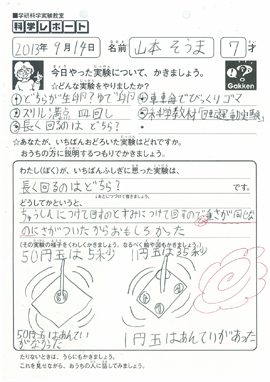 ■学研科学実験教室
科学レポート
2013年 9月14日 名前 山本 そうま 7才
今日やった実験について、かきましょう。
☆どんな実験をやりましたか?
Gakken
①どちらが生卵?ゆで卵
②スリル満点 皿回し
③長く回るのは どちら?
☆あなたが、いちばんおどろいた実験はどれですか。
おうちの方に説明するつもりでかきましょう。
わたし(ぼく)が、いちばんふしぎに思った実験は、
長く回るのはどちら? です。
どうしてかというと、
ちゅうしんにつけて回すのとすみにつけて回すので重さが同じな
のにさがついたからおもしろかった
(その実験の様子をくわしくかきましょう。なるべく絵や図もかきましょう。)
50円玉は5秒
1円玉は35秒
50円玉はあんてい
がなかった
1円玉はあんていがあった
たりないときは、うらにもかきましょう。
これを見せながら、おうちの人に話してみましょう。